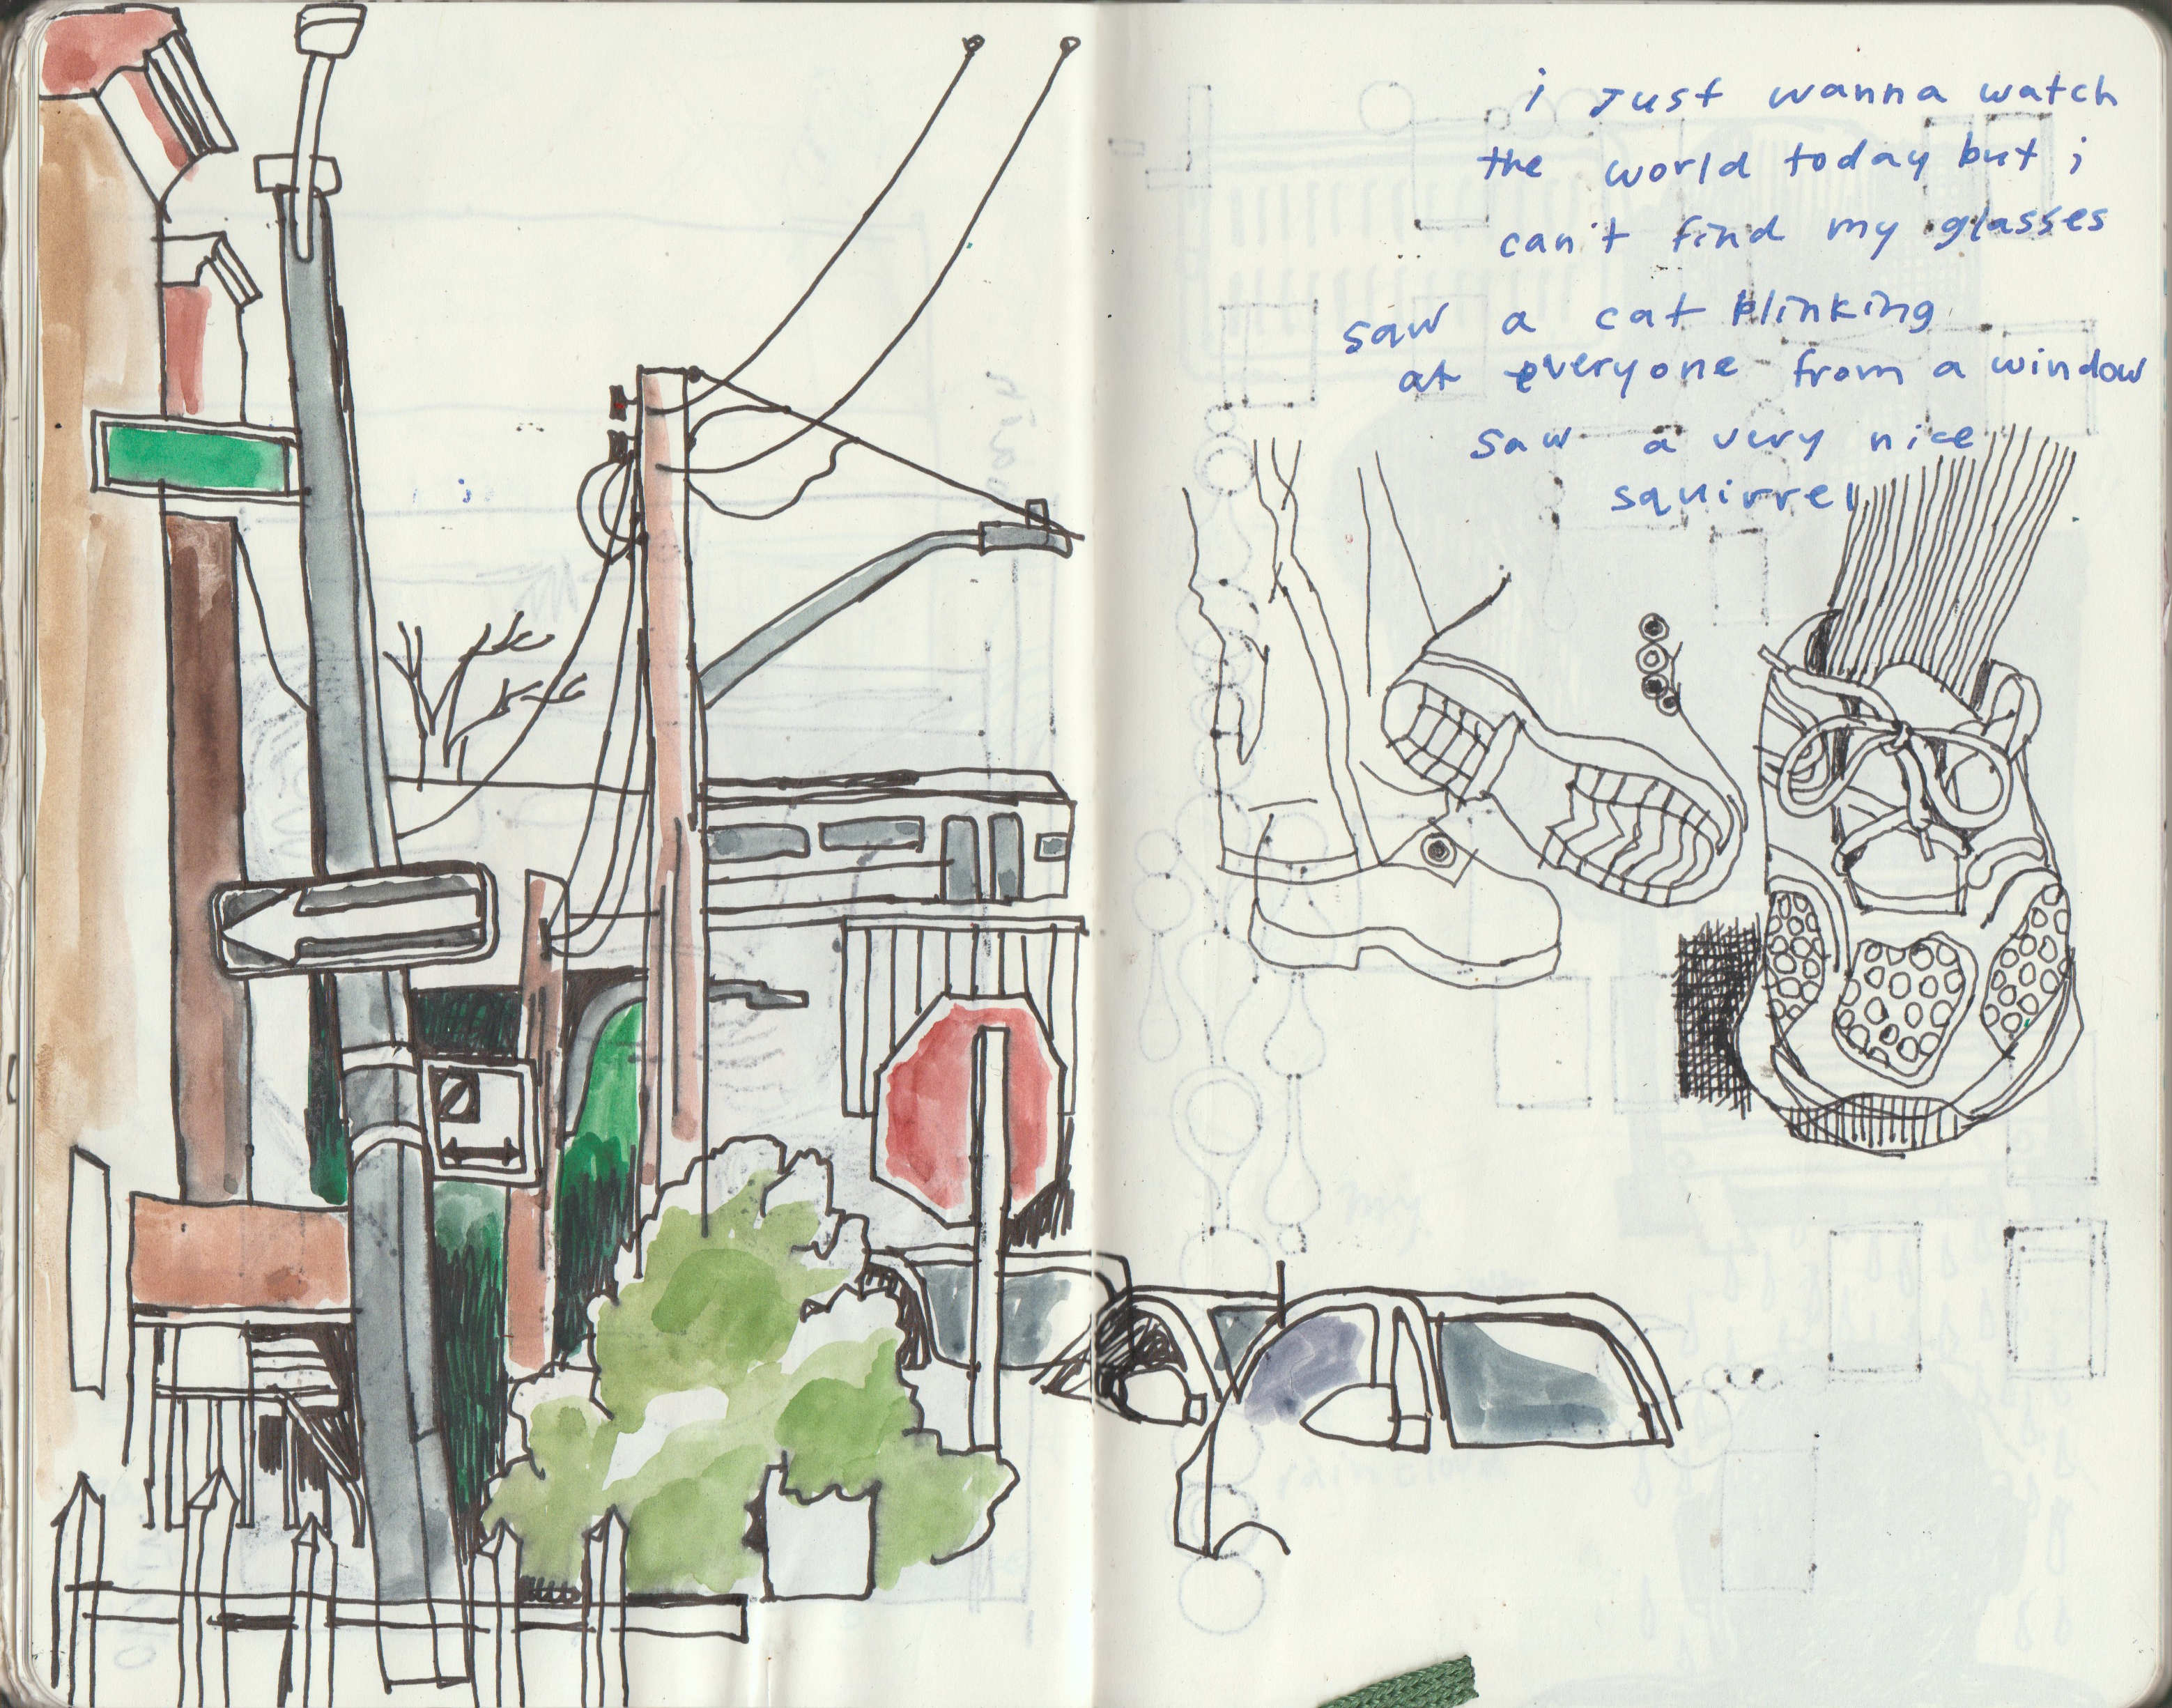 i just wanna watch
the world today but i
can't find my glasses
saw a cat blinking
at everyone from a window
saw a very nice
squirrel